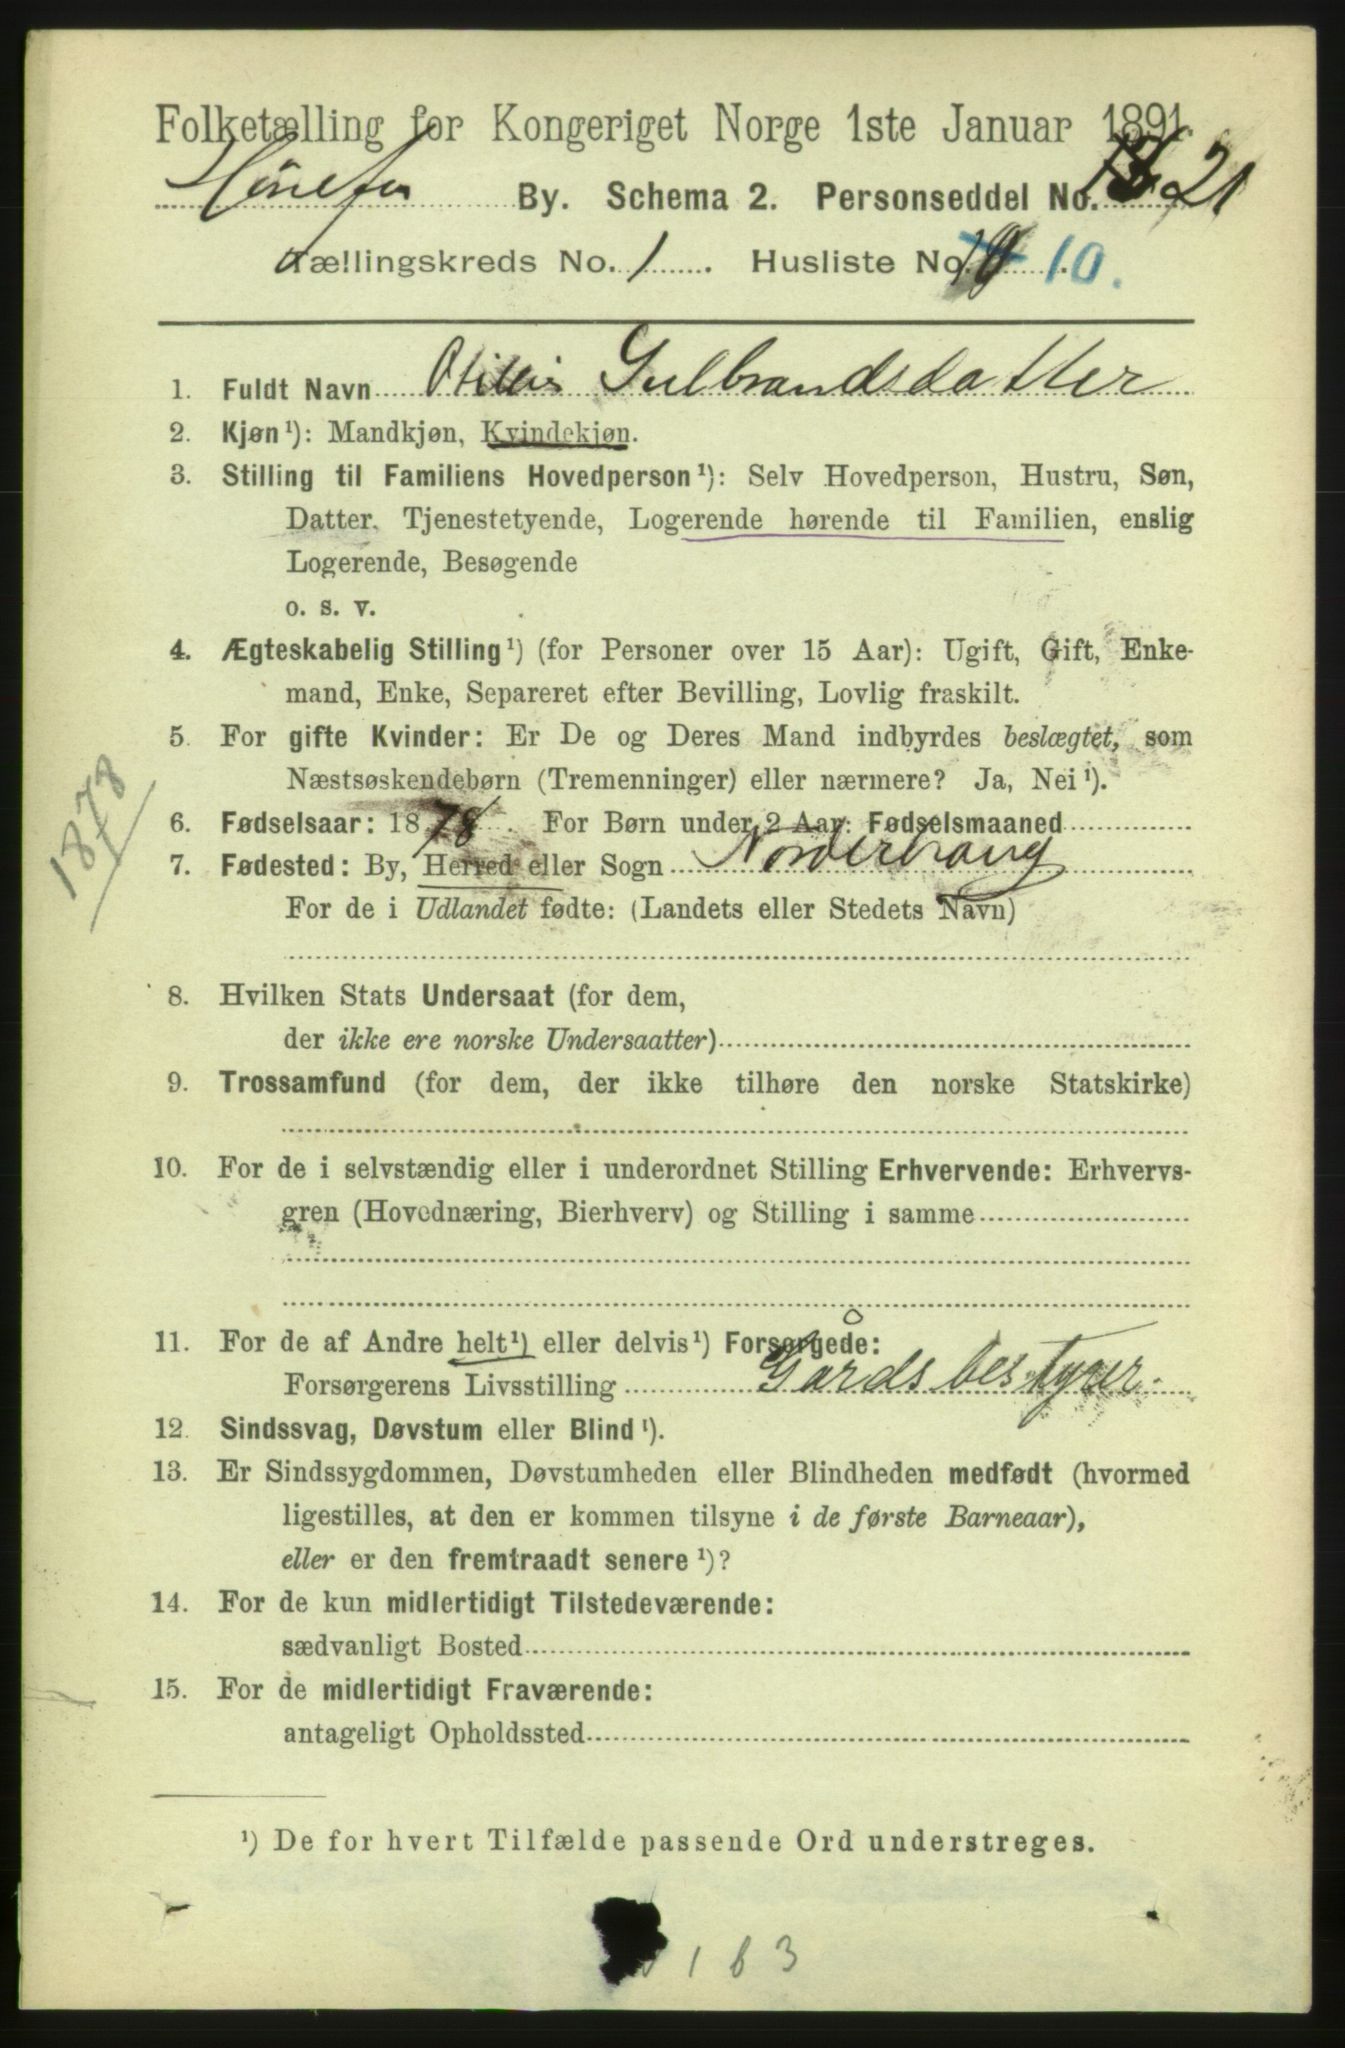 Folketælling for Kongeriget Norge 1ste Januar 1891.
Hønefos By. Schema 2. Personseddel No. 21
Tællingskreds No. 1. Husliste No. 10.
1. Fuldt Navn Otilie Gulbrandsdatter
2. Kjøn¹): Mandkjøn, Kvindekjøn.
3. Stilling til Familiens Hovedperson¹): Selv Hovedperson, Hustru, Søn,
Datter, Tjenestetyende, Logerende hørende til Familien, enslig
Logerende, Besøgende
o. s. v.
4. Ægteskabelig Stilling¹) (for Personer over 15 Aar): Ugift, Gift, Enke-
mand, Enke, Separeret efter Bevilling, Lovlig fraskilt.
5. For gifte Kvinder: Er De og Deres Mand indbyrdes beslægtet, som
Næstsøskendebørn (Tremenninger) eller nærmere? Ja, Nei¹).
1878
6. Fødselsaar: 1878. For Børn under 2 Aar: Fødselsmaaned
7. Fødested: By, Herred eller Sogn Norderhaug
For de i Udlandet fødte: (Landets eller Stedets Navn)
8. Hvilken Stats Undersaat (for dem,
der ikke ere norske Undersaatter)
9. Trossamfund (for dem, der ikke tilhøre den norske Statskirke)
10. For de i selvstændig eller i underordnet Stilling Erhvervende: Erhvervs-
gren (Hovednæring, Bierhverv) og Stilling i samme
11. For de af Andre helt¹) eller delvis¹) Forsørgede:
Forsørgerens Livsstilling Gårdsbestyrer.
12. Sindssvag, Døvstum eller Blind¹).
13. Er Sindssygdommen, Døvstumheden eller Blindheden medfødt (hvormed
ligestilles, at den er kommen tilsyne i de første Barneaar),
eller er den fremtraadt senere¹)?
14. For de kun midlertidigt Tilstedeværende:
sædvanligt Bosted
15. For de midlertidigt Fraværende:
antageligt Opholdssted
¹) De for hvert Tilfælde passende Ord understreges.
163